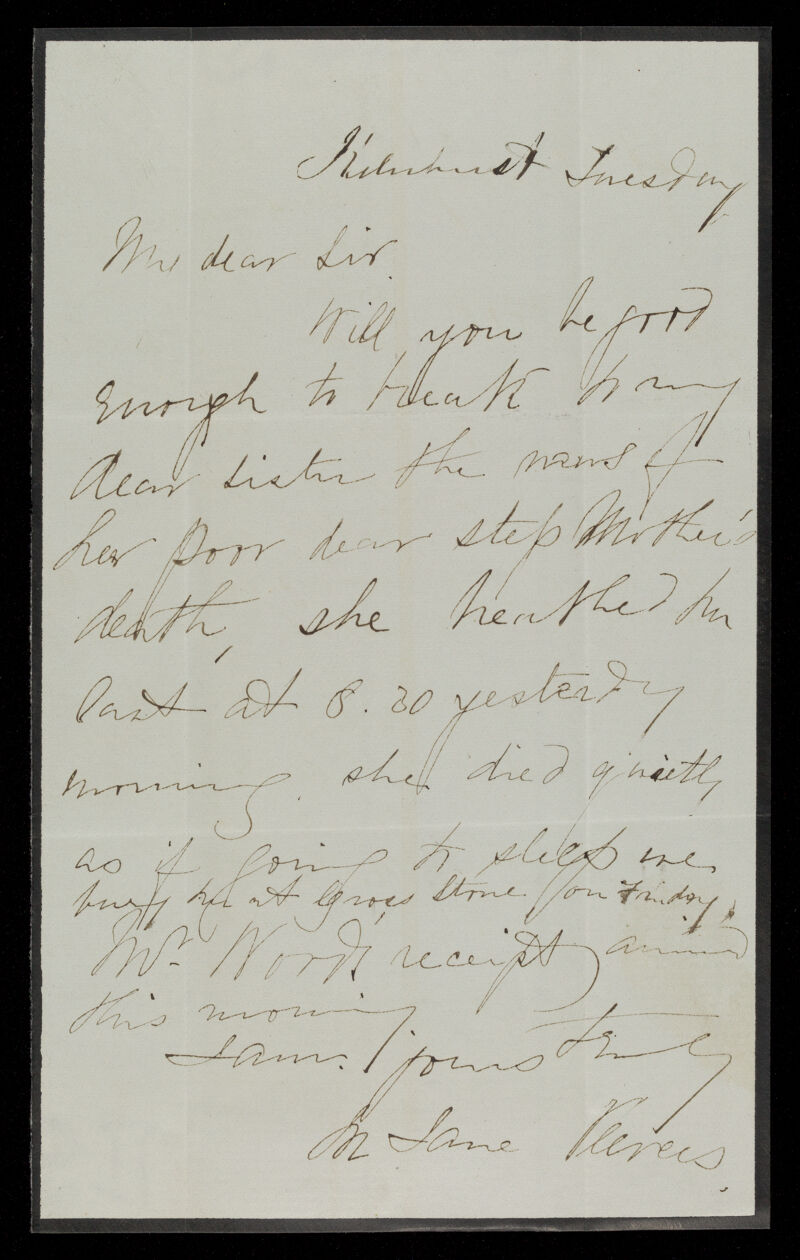 Kilnhurst Tuesday
My dear Sir
Will you be good
enough to break to my
dear sister the news of
her poor dear step Mother's
death, she breathed her
last at 8.20 yesterdy
morning. she died quietly
as if going to sleep we
bury her at Cross Stone on Friday,
Mr. Wood's receipt arrived
this morning
I am. yours truly
M Jane